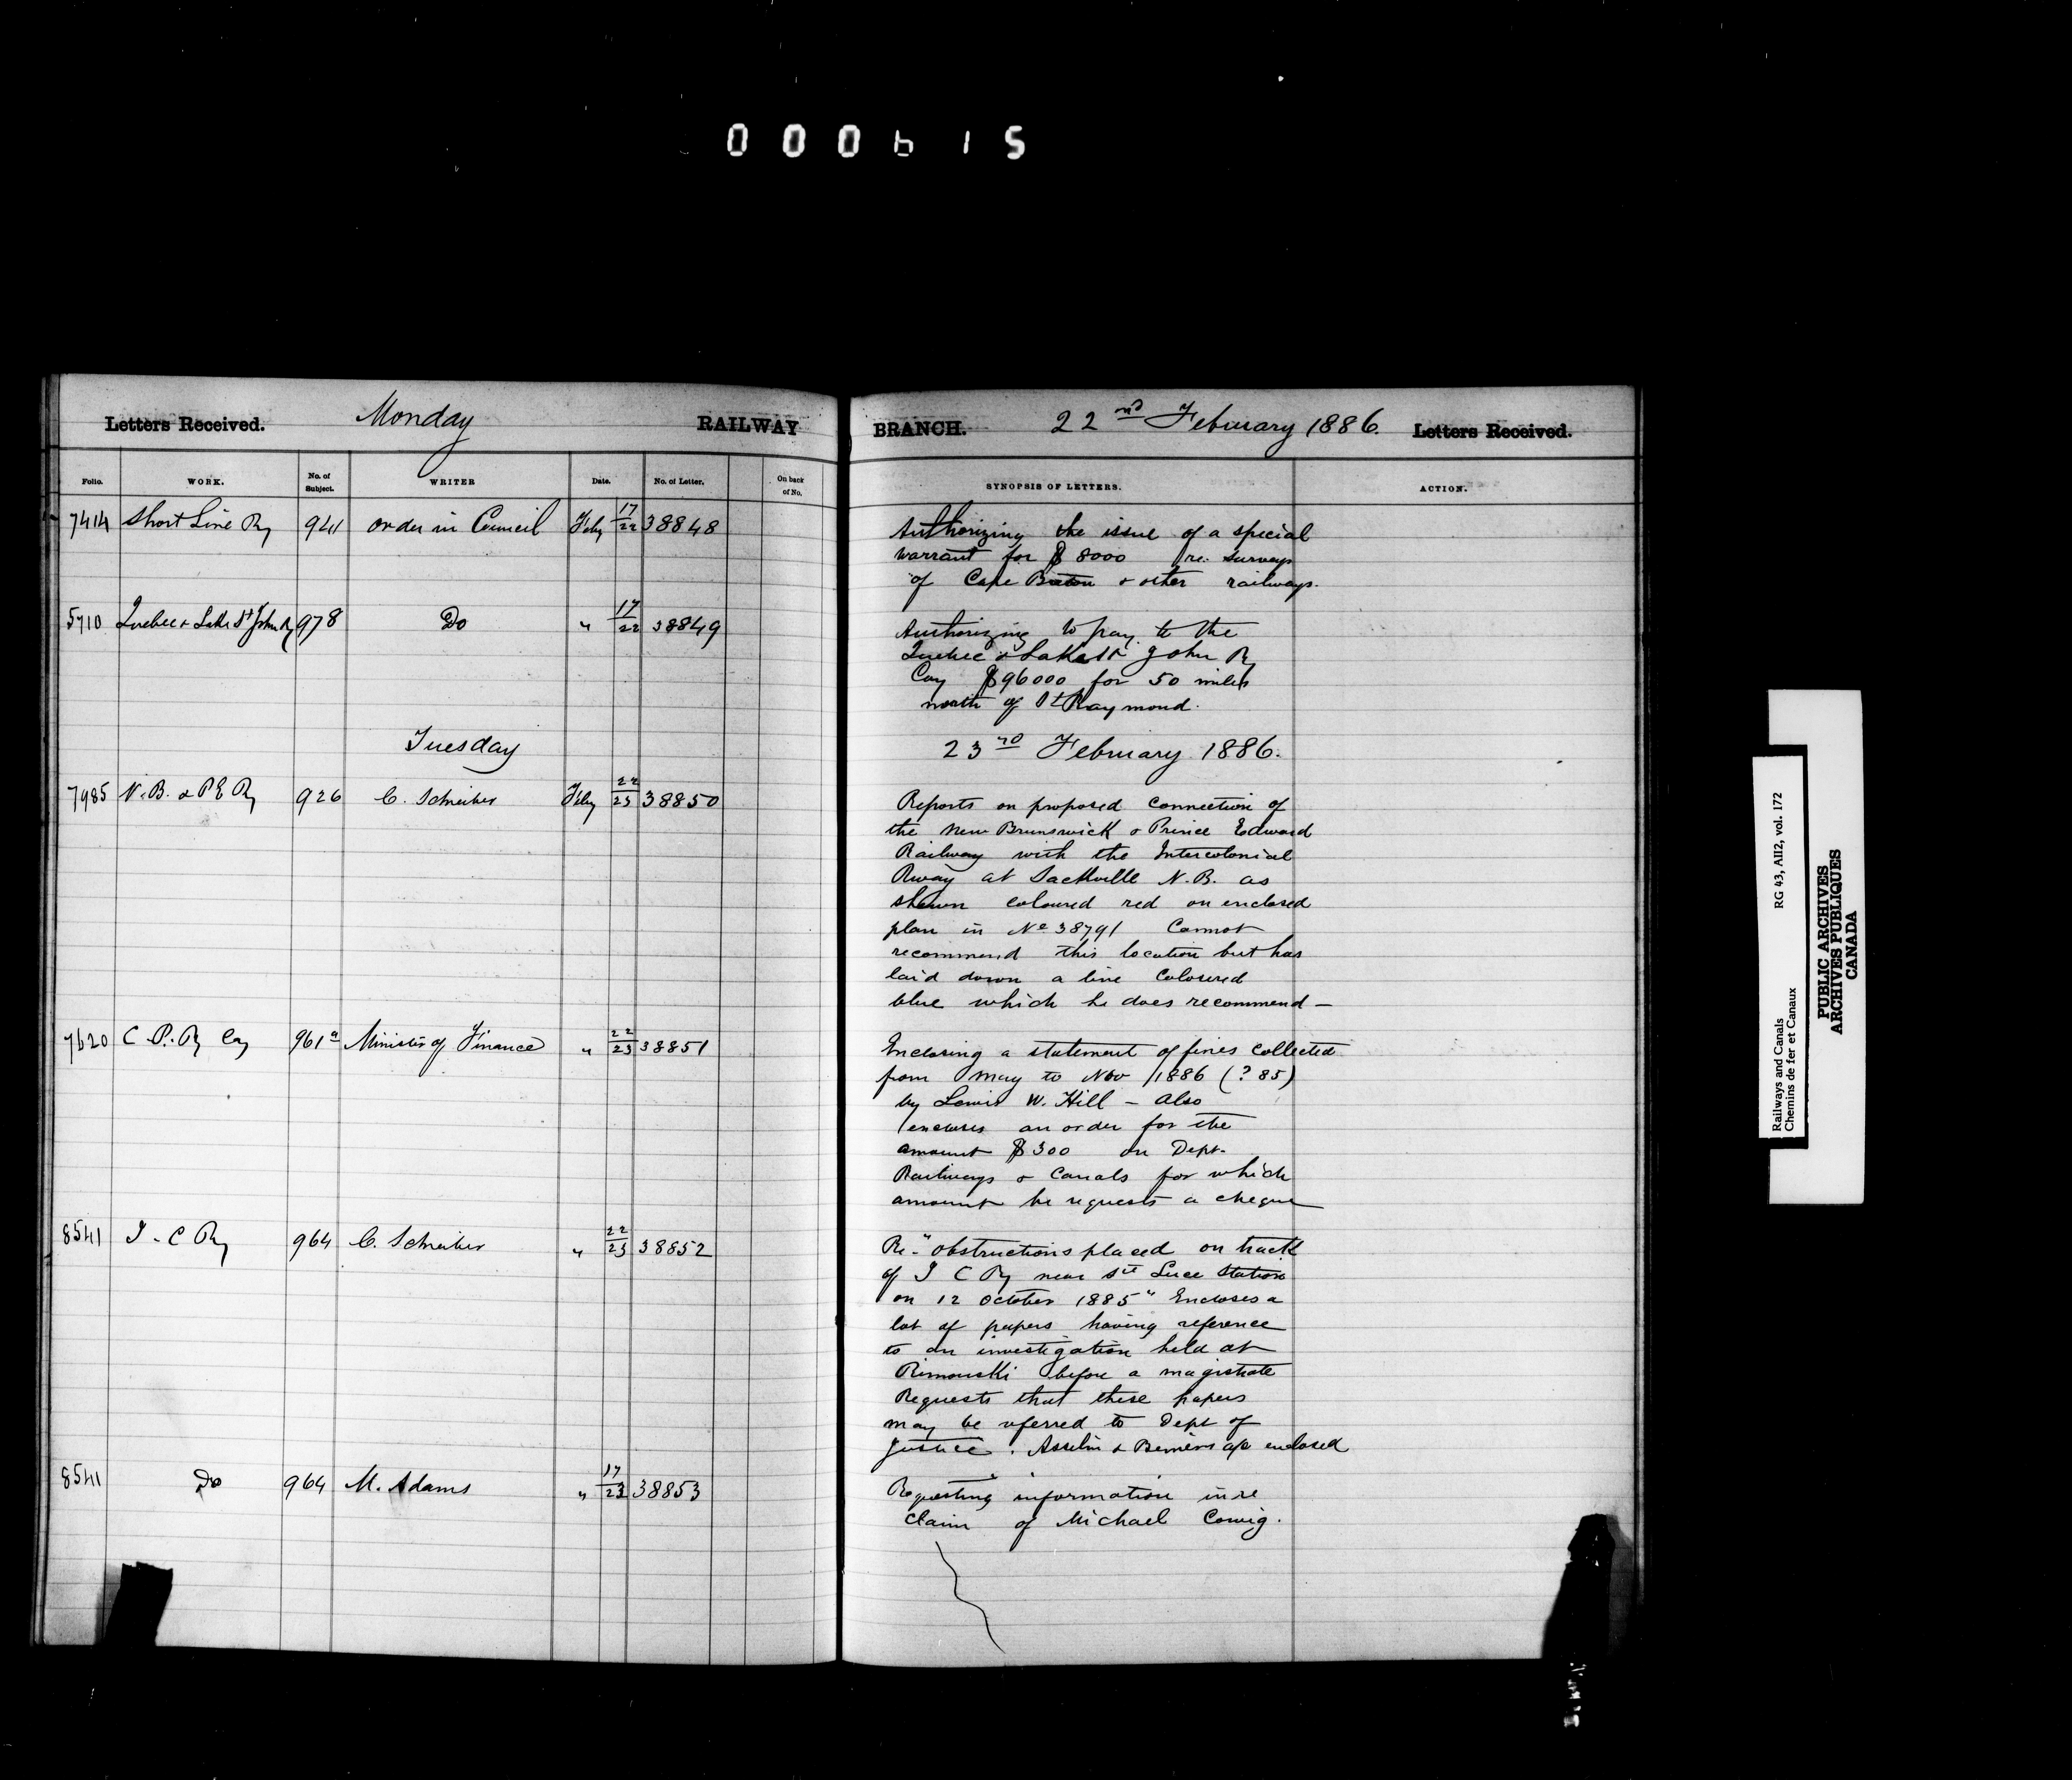 000615
Letters Received. Monday RAILWAY
Folio. WORK. No. of Subject. WRITER Date. No. of Letter. On back of No.
7414 Short Line Ry 941 Order in Council Feby 17/22 38848
5710 Quebec & Lake St John Ry 978 Do " 17/22 38849
Tuesday
7985 N.B. & P E Ry 926 C. Schreiber Feby 22/23 38850
7620 C P. Ry Coy 961a Minister of Finance " 22/23 38851
8541 I. C Ry 964 C. Schreiber " 22/23 38852
8541 Do 964 M. Adams " 17/23 38853
BRANCH. 22nd February 1886. Letters Received.
SYNOPSIS OF LETTERS. ACTION.
Authorizing the issue of a special
warrant for $8000 re: surveys
of Cape Breton & other railways.
Authorizing to pay to the
Quebec & Lake St John Ry
Coy $96000 for 50 miles
north of St Raymond.
23rd February 1886.
Reports on proposed connection of
the New Brunswick & Prince Edward
Railway with the Intercolonial
Rway at Sackville N.B. as
shewn coloured red on enclosed
plan in No 38791 Cannot
recommend this location but has
laid down a line coloured
blue which he does recommend —
Enclosing a statement of fines collected
from May to Nov /1886 (? 85)
by Lewis W. Hill — Also
encloses an order for the
amount $300 on Dept.
Railways & Canals for which
amount he requests a cheque
Re- "obstructions placed on track
of I C Ry near Ste Luce Station
on 12 October 1885" Encloses a
lot of papers having reference
to an investigation held at
Rimouski before a magistrate
Requests that these papers
may be referred to Dept of
Justice. Asselin & Berniers a/c enclosed
Requesting information in re
claim of Michael Cowig.
Railways and Canals RG 43, AII2, vol. 172
Chemins de fer et Canaux
PUBLIC ARCHIVES
ARCHIVES PUBLIQUES
CANADA